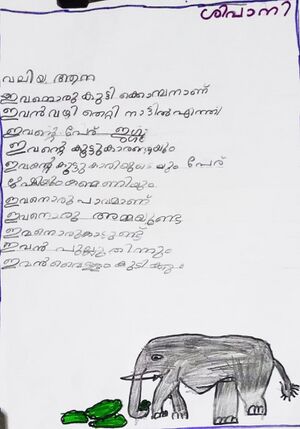 ശിപാനി
വലിയ ആന
ഇവനൊരു കുട്ടി ക്കൊമ്പനാണ്
ഇവൻ വഴി തെറ്റി നാട്ടിൽ എത്തി
ഇവന്റെ പേര്
ഇവന്റെ കൂട്ടുകാരുടെയും
ഇവന്റെ കൂട്ടുകാരിയുടെ യും പേര്
ഇവനൊരു പാവമാണ്
ഇവനൊരു അമ്മയുണ്ട്
ഇവനൊരു കാടുണ്ട്
ഇവൻ പുല്ലു തിന്നും
ഇവൻ വെള്ളം കുടിക്കും